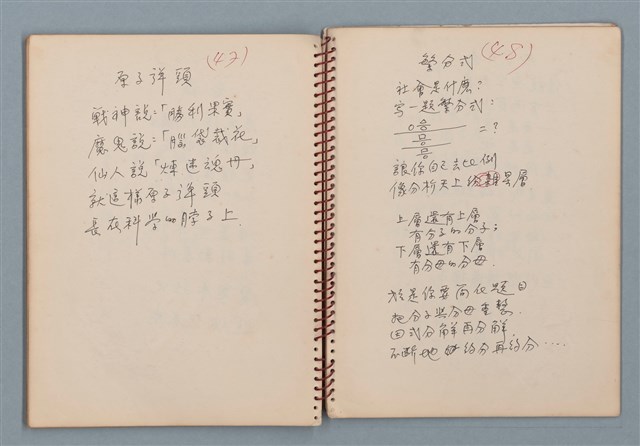 (47)
原子弹頭
戦神說:「勝利果實」
魔鬼說:「腦袋栽花」
仙人說「煉迷魂丹」
就這様原子弹頭
長在科学的脖子上.
(48)
繁分式
社會是什麽?
写一題繁分式:
= ?
讓你自己去比例
像分析天上 雲層
上層還有上層
有分子的分子;
下層還有下層
有分母的分母.
於是你要簡化題目
把分子與分母重整.
因式分解再分解,
不断地 約分再約分‥‥